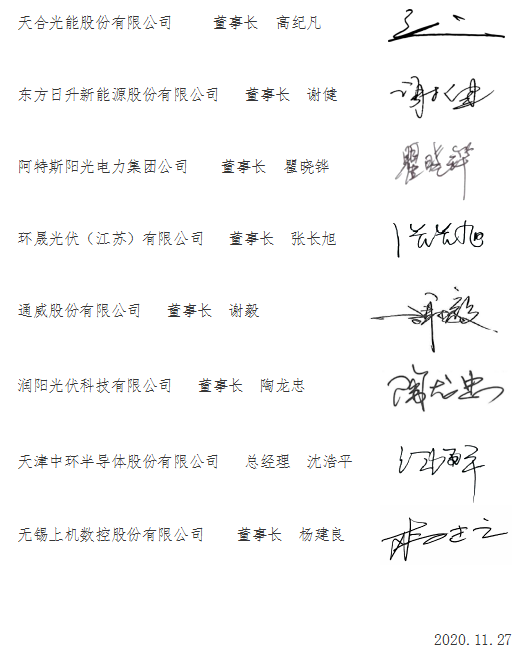 天合光能股份有限公司 董事长 高纪凡
东方日升新能源股份有限公司 董事长 谢健
阿特斯阳光电力集团公司 董事长 瞿晓铧 瞿晓铧
环晟光伏（江苏）有限公司 董事长 张长旭
通威股份有限公司 董事长 谢毅 谢毅
润阳光伏科技有限公司 董事长 陶龙忠 陶龙忠
天津中环半导体股份有限公司 总经理 沈浩平
无锡上机数控股份有限公司 董事长 杨建良
2020.11.27